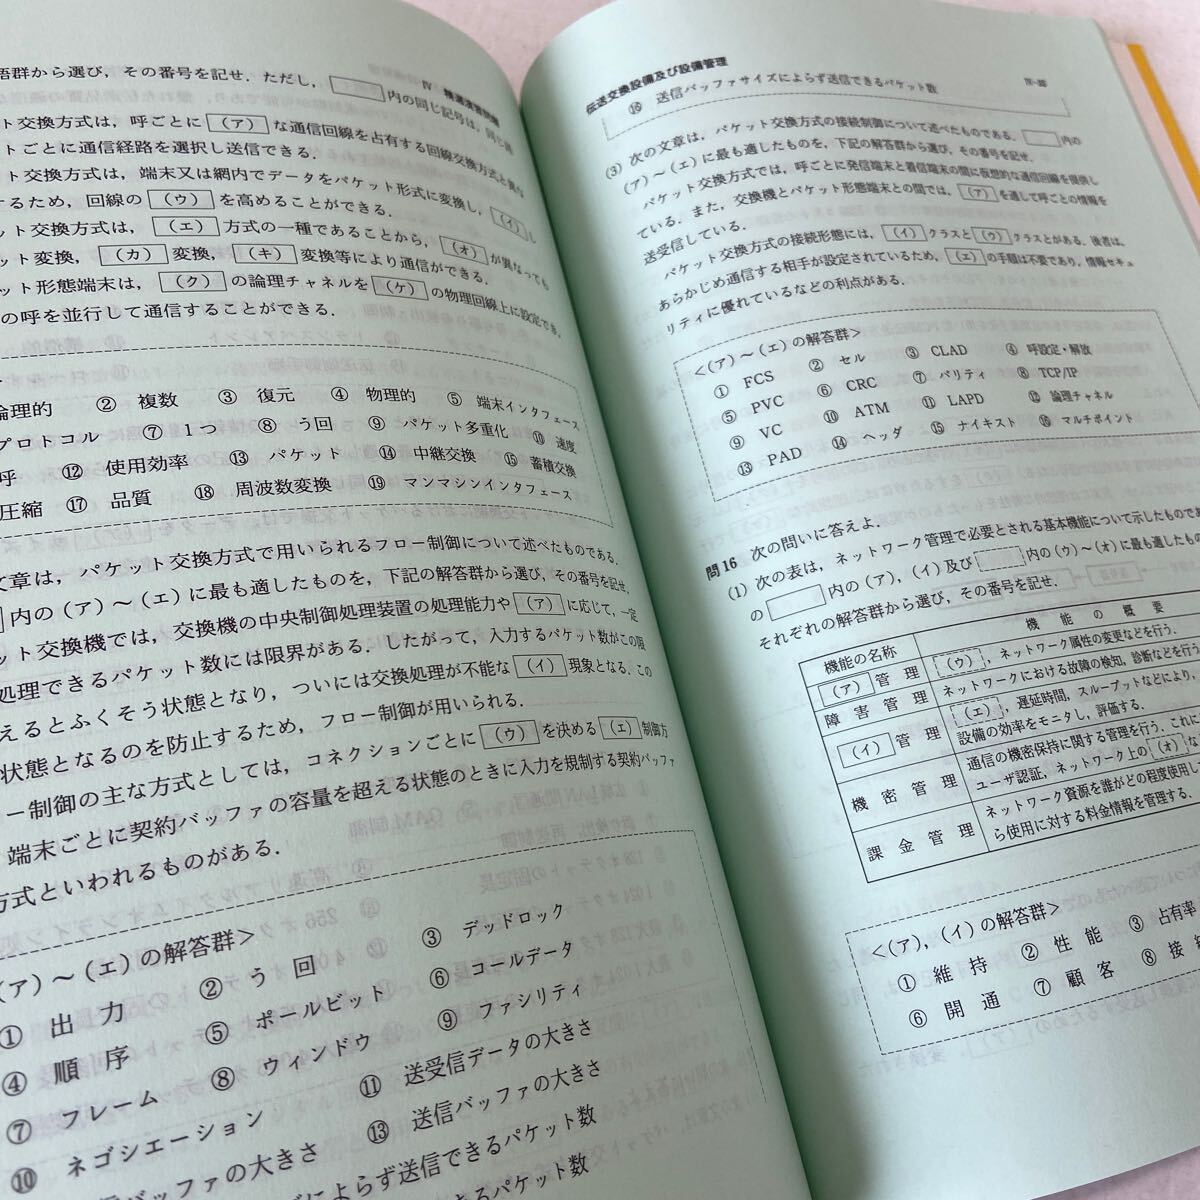 Ⅳ 精選演習問題
語群から選び，その番号を記せ．ただし，　内の同じ記号は，同じ
ット交換方式は，呼ごとに（ア）な通信回線を占有する回線交換方式と異な
ットごとに通信経路を選択し送信できる．
ット交換方式は，端末又は網内でデータをパケット形式に変換し，（イ）し
するため，回線の（ウ）を高めることができる．
ット交換方式は，（エ）方式の一種であることから，（オ）が異なっても
ット変換，（カ）変換，（キ）変換等により通信ができる．
ット形態端末は，（ク）の論理チャネルを（ケ）の物理回線上に設定でき，
の呼を並行して通信することができる．
論理的 ② 複数 ③ 復元 ④ 物理的 ⑤ 端末インタフェース
プロトコル ⑦ 1つ ⑧ う回 ⑨ パケット多重化 ⑩ 速度
呼 ⑫ 使用効率 ⑬ パケット ⑭ 中継交換 ⑮ 蓄積交換
圧縮 ⑰ 品質 ⑱ 周波数変換 ⑲ マンマシンインタフェース
文章は，パケット交換方式で用いられるフロー制御について述べたものである．
内の（ア）～（エ）に最も適したものを，下記の解答群から選び，その番号を記せ．
ット交換機では，交換機の中央制御処理装置の処理能力や（ア）に応じて，一定
処理できるパケット数には限界がある．したがって，入力するパケット数がこの限
えるとふくそう状態となり，ついには交換処理が不能な（イ）現象となる．この
状態となるのを防止するため，フロー制御が用いられる．
ー制御の主な方式としては，コネクションごとに（ウ）を決める（エ）制御方
端末ごとに契約バッファの容量を超える状態のときに入力を規制する契約バッファ
方式といわれるものがある．
（ア）～（エ）の解答群＞
① 出力 ② う回 ③ デッドロック
④ 順序 ⑤ ポールビット ⑥ コールデータ
⑦ フレーム ⑧ ウィンドウ ⑨ ファシリティ
⑩ ネゴシエーション ⑪ 送受信データの大きさ
バッファの大きさ ⑬ 送信バッファの大きさ
バッファの大きさによらず送信できるパケット数
るパケット数
伝送交換設備及び設備管理
⑯ 送信バッファサイズによらず送信できるパケット数
(3) 次の文章は，パケット交換方式の接続制御について述べたものである．　内の
（ア）～（エ）に最も適したものを，下記の解答群から選び，その番号を記せ．
パケット交換方式では，呼ごとに発信端末と着信端末の間に仮想的な通信回線を提供し
ている．また，交換機とパケット形態端末との間では，（ア）を通して呼ごとの情報を
送受信している．
パケット交換方式の接続形態には，（イ）クラスと（ウ）クラスとがある．後者は，
あらかじめ通信する相手が設定されているため，（エ）の手順は不要であり，情報セキュ
リティに優れているなどの利点がある．
＜（ア）～（エ）の解答群＞
① FCS ② セル ③ CLAD ④ 呼設定・解放
⑤ PVC ⑥ CRC ⑦ パリティ ⑧ TCP/IP
⑨ VC ⑩ ATM ⑪ LAPD ⑫ 論理チャネル
⑬ PAD ⑭ ヘッダ ⑮ ナイキスト ⑯ マルチポイント
問16 次の問いに答えよ．
(1) 次の表は，ネットワーク管理で必要とされる基本機能について示したものであ
の　内の（ア），（イ）及び　内の（ウ）～（オ）に最も適したもの
それぞれの解答群から選び，その番号を記せ．
機能の名称 機能の概要
（ア）管理 （ウ），ネットワーク属性の変更などを行う．
障害管理 ネットワークにおける故障の検知，診断などを行う
（イ）管理 （エ），遅延時間，スループットなどにより，
設備の効率をモニタし，評価する．
機密管理 通信の機密保持に関する管理を行う．これに
ユーザ認証，ネットワーク上の（オ）な
課金管理 ネットワーク資源を誰がどの程度使用し
ら使用に対する料金情報を管理する．
＜（ア），（イ）の解答群＞
① 維持 ② 性能 ③ 占有率
⑥ 開通 ⑦ 顧客 ⑧ 接続